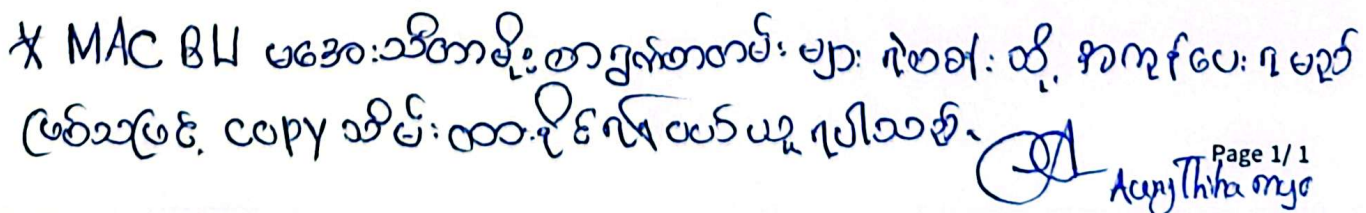 * MAC BU မအေးသီတာမိုး စာရွက်စာတမ်း များ ရဲစခန်း သို့ အကုန်ပေး ရမည်
ဖြစ်သဖြင့် copy သိမ်းထားနိုင်ရန် ထပ်ယူ ရပါသည်။
Page 1/ 1
Aung Thiha Myo